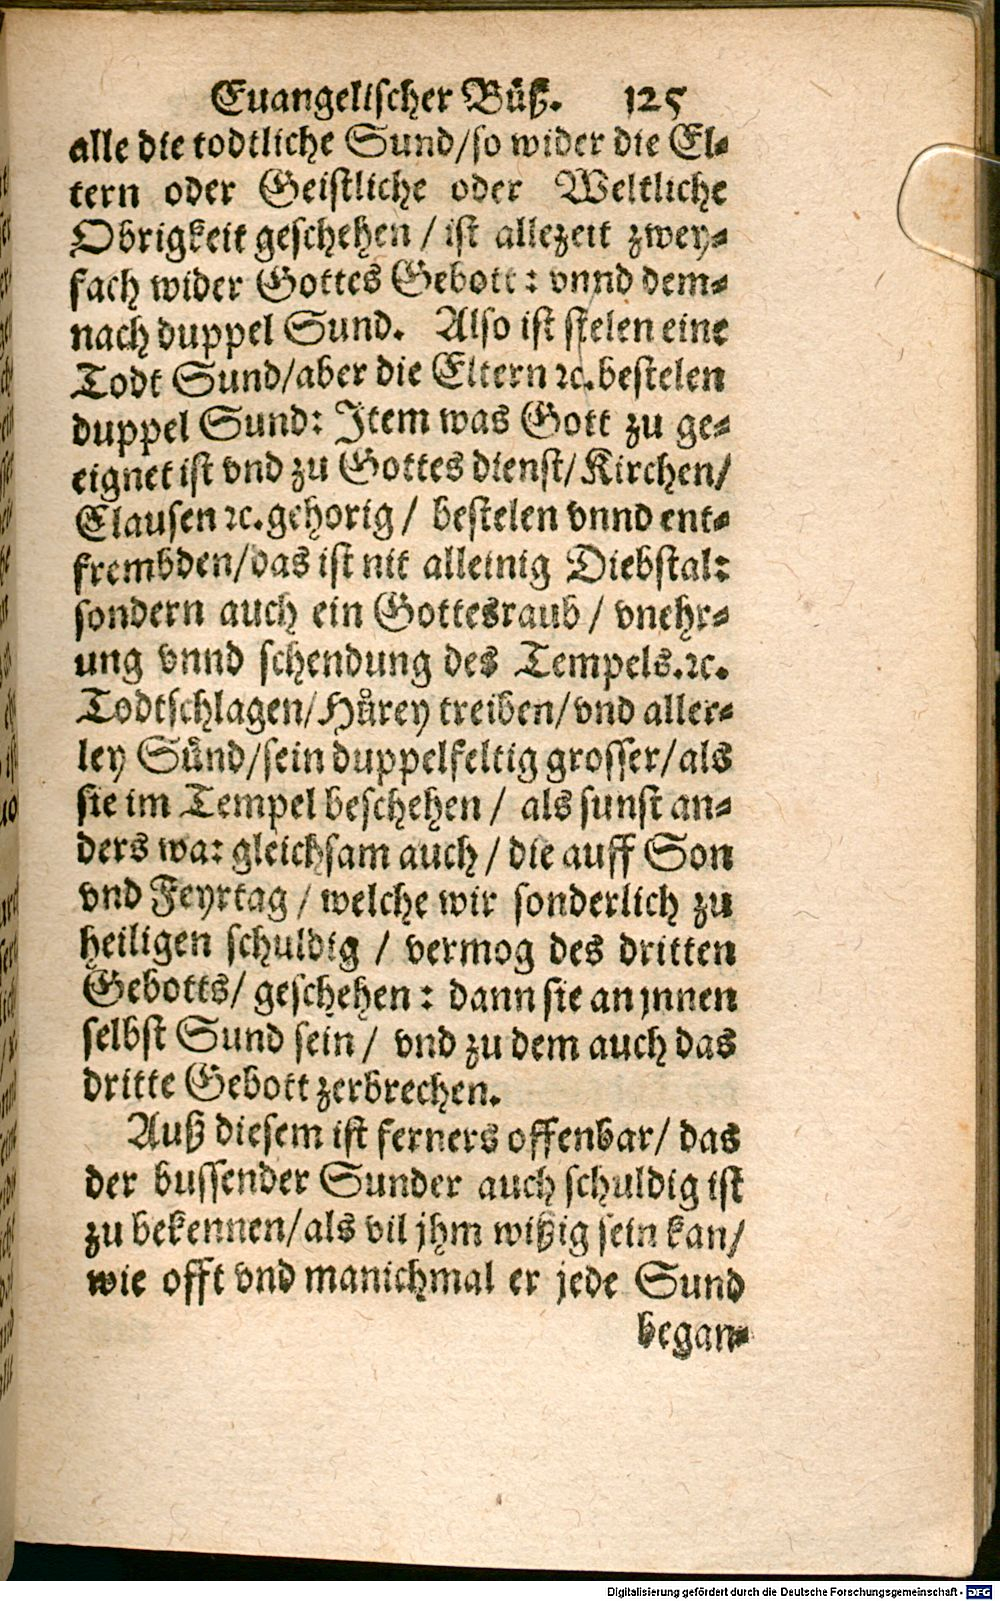 Euangelischer Büß. 125
alle die todtliche Sund/so wider die El-
tern oder Geistliche oder Weltliche
Obrigkeit geschehen / ist allezeit zwey-
fach wider Gottes Gebott: vnnd dem-
nach duppel Sund. Also ist stelen eine
Todt Sund/aber die Eltern ꝛc. bestelen
duppel Sund: Item was Gott zu ge-
eignet ist vnd zu Gottes dienst/Kirchen/
Clausen ꝛc. gehorig / bestelen vnnd ent-
frembden/das ist nit alleinig Diebstal:
sondern auch ein Gottesraub / vnehr-
ung vnnd schendung des Tempels.ꝛc.
Todtschlagen/Hůrey treiben/vnd aller-
ley Sůnd/sein duppelfeltig grosser/als
sie im Tempel beschehen / als sunst an-
ders wa: gleichsam auch / die auff Son
vnd Feyrtag / welche wir sonderlich zu
heiligen schuldig / vermog des dritten
Gebotts/ geschehen: dann sie an jnnen
selbst Sund sein / vnd zu dem auch das
dritte Gebott zerbrechen.
Auß diesem ist ferners offenbar/ das
der bussender Sunder auch schuldig ist
zu bekennen/als vil jhm wißig sein kan/
wie offt vnd manichmal er jede Sund
began-
Digitalisierung gefördert durch die Deutsche Forschungsgemeinschaft - DFG